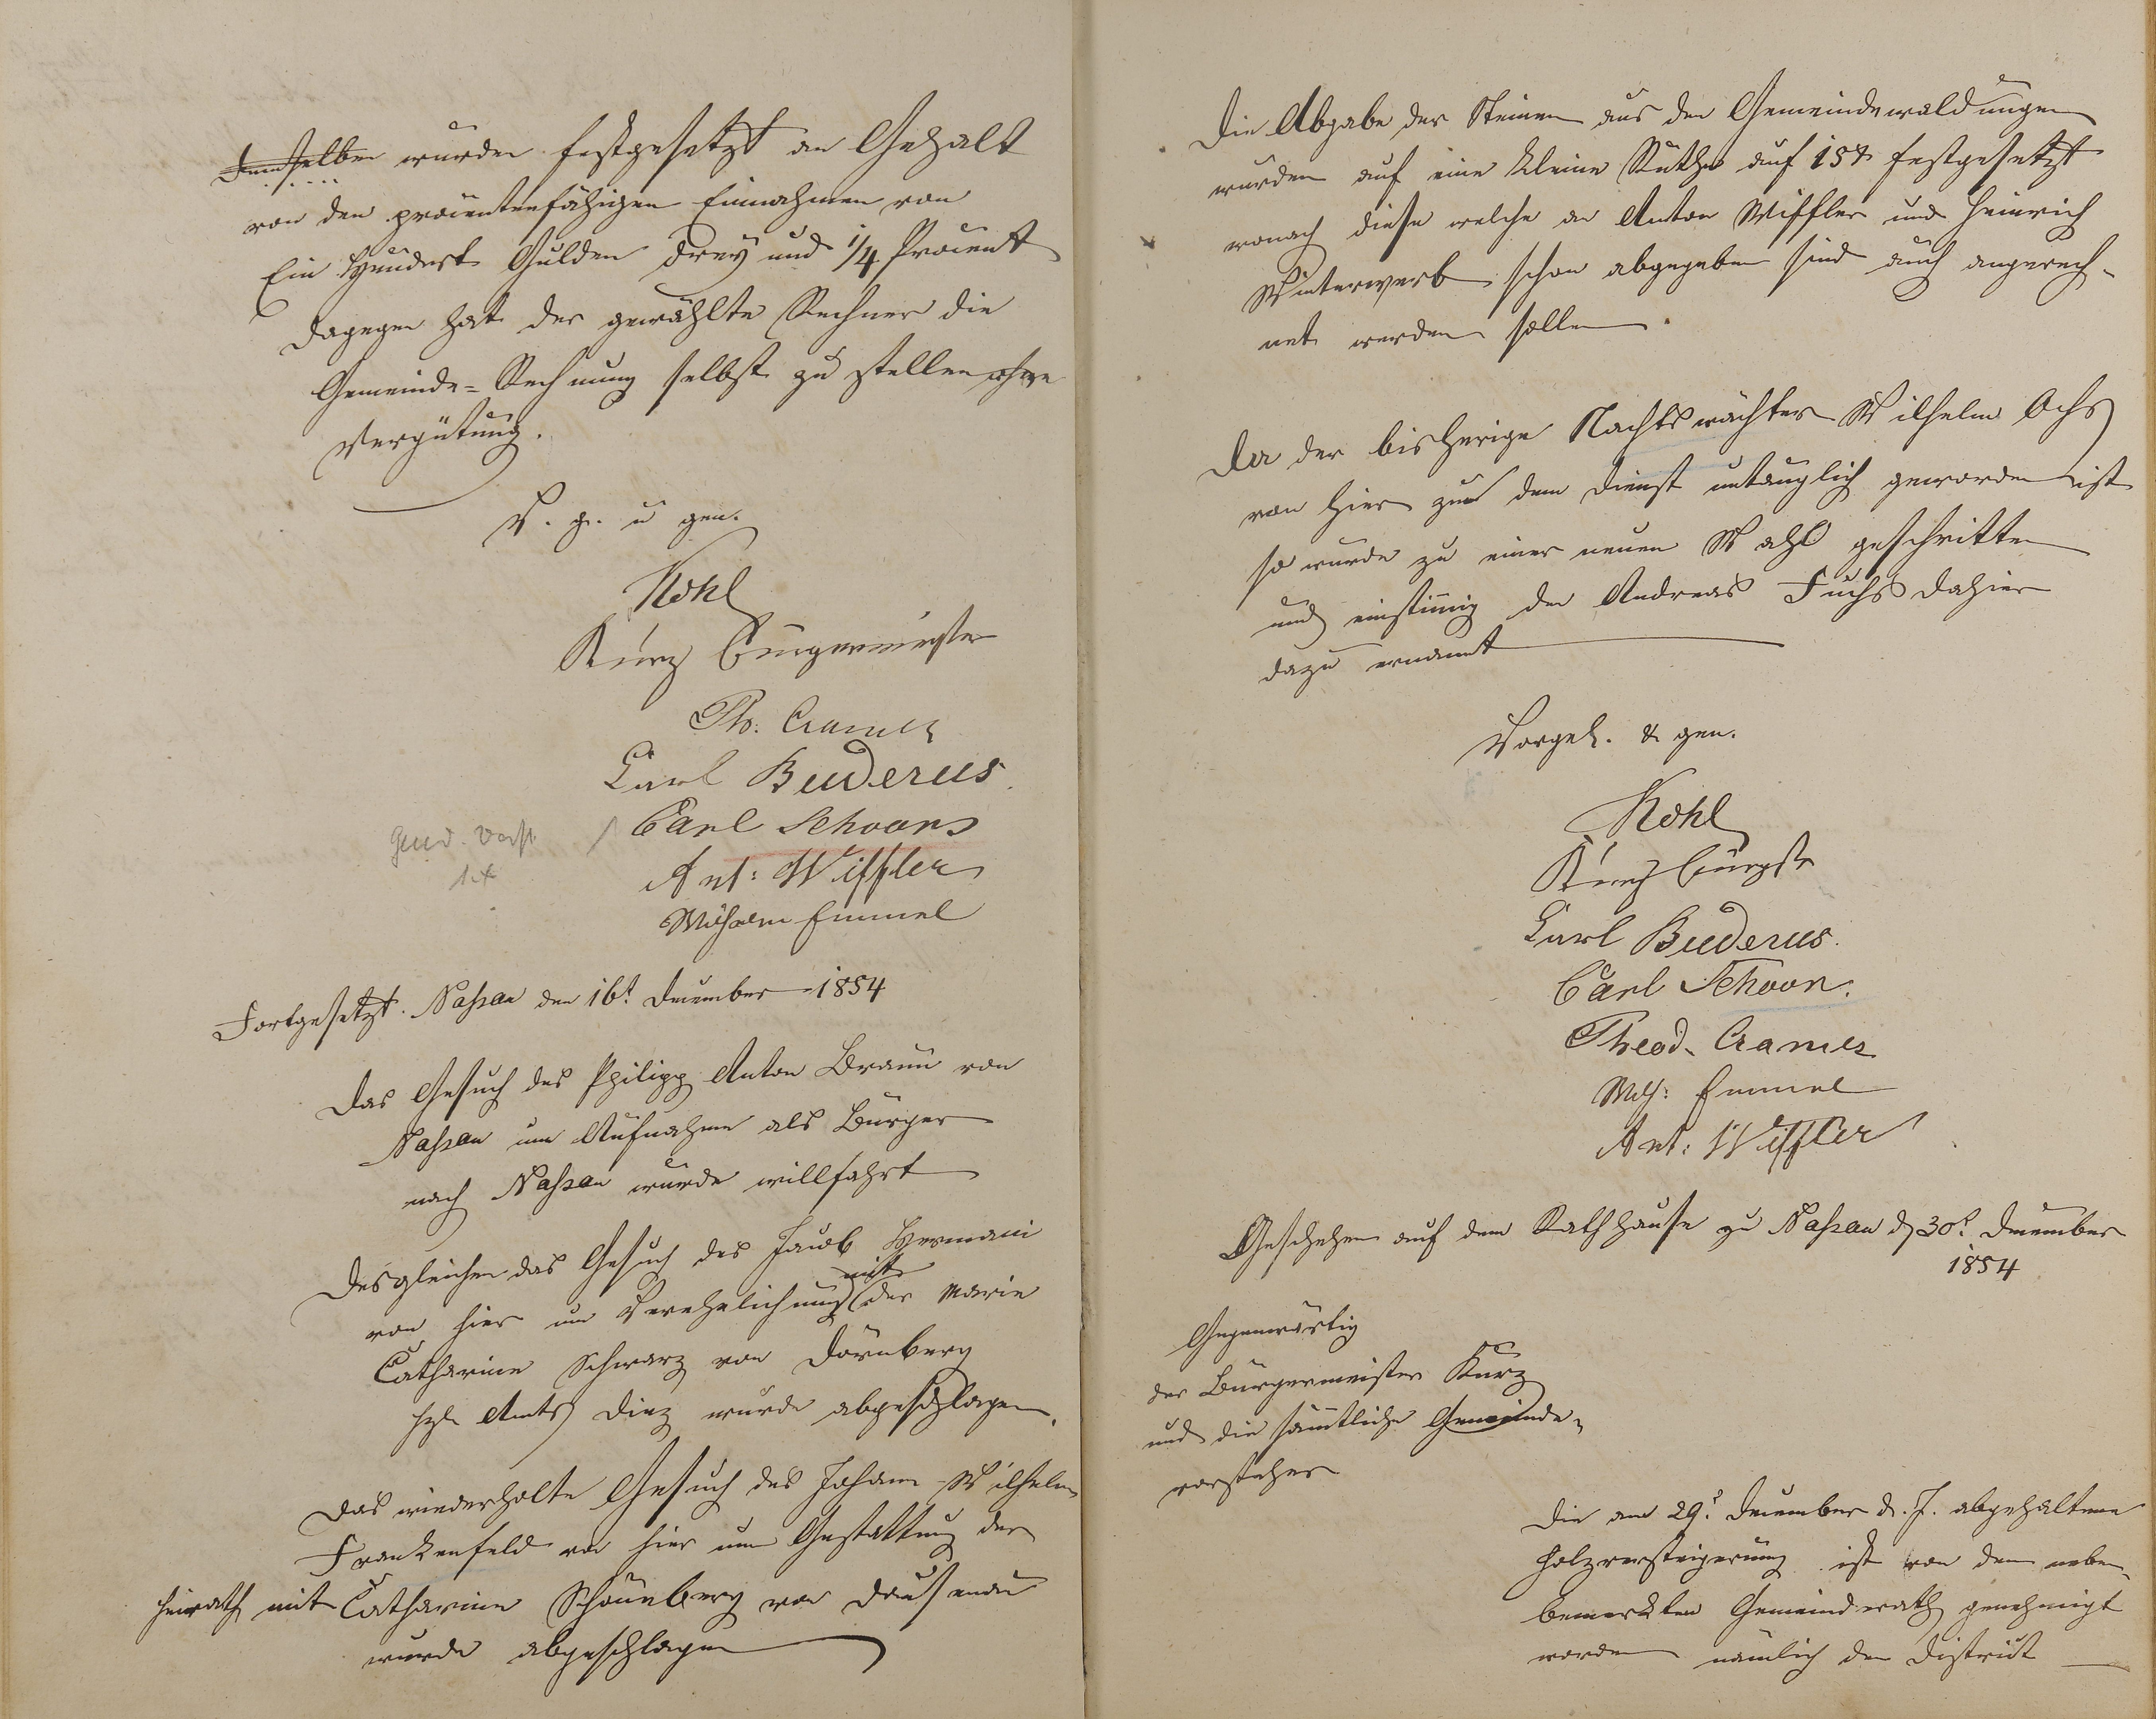 Demselben wurden festgesetzt an Gehalt
von den procentenfähigen Einnahmen von
Ein Hundert Gulden drey und 1/4 Procent
dagegen hat der gewählte Rechner die
Gemeinde-Rechnung selbst zu stellen ohne
Vergütung.
V. g. u gen.
Kohl
Kurz Bürgermeister
Th. Cramer
Carl Buderus
Carl Schoor
Ant: Wiffler
Wilhelm Emmel
Fortgesetzt. Nassau den 16t December 1854
Das Gesuch des Philipp Anton Braun von
Nassau um Aufnahme als Bürger
nach Nassau wurde willfahrt
Desgleichen das Gesuch des Jacob Hermani
von hier um Verehelichung mit der Marie
Catharine Schwarz von Dörnberg
hzl. Amts Diez wurde abgeschlagen.
Das wiederholte Gesuch des Johann Wilhelm
Frankenfeld von hier um Gestattung der
Heirath mit Catharine Schöneberg von Dausenau
wurde abgeschlagen
Die Abgabe der Steinen aus den Gemeindewaldungen
wurden auf eine kleine Ruthe auf 15 festgesetzt
wonach diese welche an Anton Wiffler und Heinrich
Winterwerb schon abgegeben sind auch angerech-
net werden sollen.
Da der bisherige Nachtswächter Wilhelm Ochs
von hier zu dem Dienst untauglich geworden ist
so wurde zu einer neuen Wahl geschritten
und einstimig der Andreas Fuchs dahier
dazu ernannt
Vorgel. & gen.
Kohl
Kurz Bürgstr
Carl Buderus.
Carl Schoor.
Theod. Cramer
Wilh: Emmel
Ant: Wiffler
Geschehen auf dem Rathhause zu Nassau d 30t December
1854
Gegenwärtig
der Bürgermeister Kurz
und die sämtliche Gemeinde-
vorsteher
Die am 29t December d. J. abgehaltene
Holzversteigerung ist von dem neben-
bemerkten Gemeinderath genehmigt
worden nämlich den District